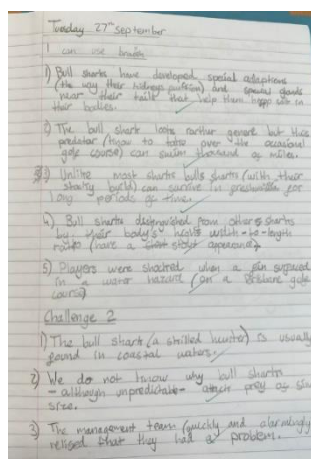 Tuesday 27th September
I can use
1) Bull sharks have developed special adaptions
(the way their kidneys function) and special glands
near their tails that help them keep salt in
their bodies.
2) The bull shark looks rarther generic but this
predator (know to take over the occasional
golf course) can swim thousand of miles.
3) Unlike most sharks bulls sharks (with their
stocky build) can survive in freshwater for
long periods of time.
4) Bull sharks distinguished from other sharks
by their body's width-to-length
ratio (have a stout appearance)
5) Players were shocked when a fin surfaced
in a water hazard (on a Brisbane golf
course)
Challenge 2
1) The bull shark (a skilled hunter) is usually
found in coastal waters.
2) We do not know why bull sharks
- although unpredictable - attack prey of
size.
3) The management team (quickly and alarmingly
relised that they had a problem.